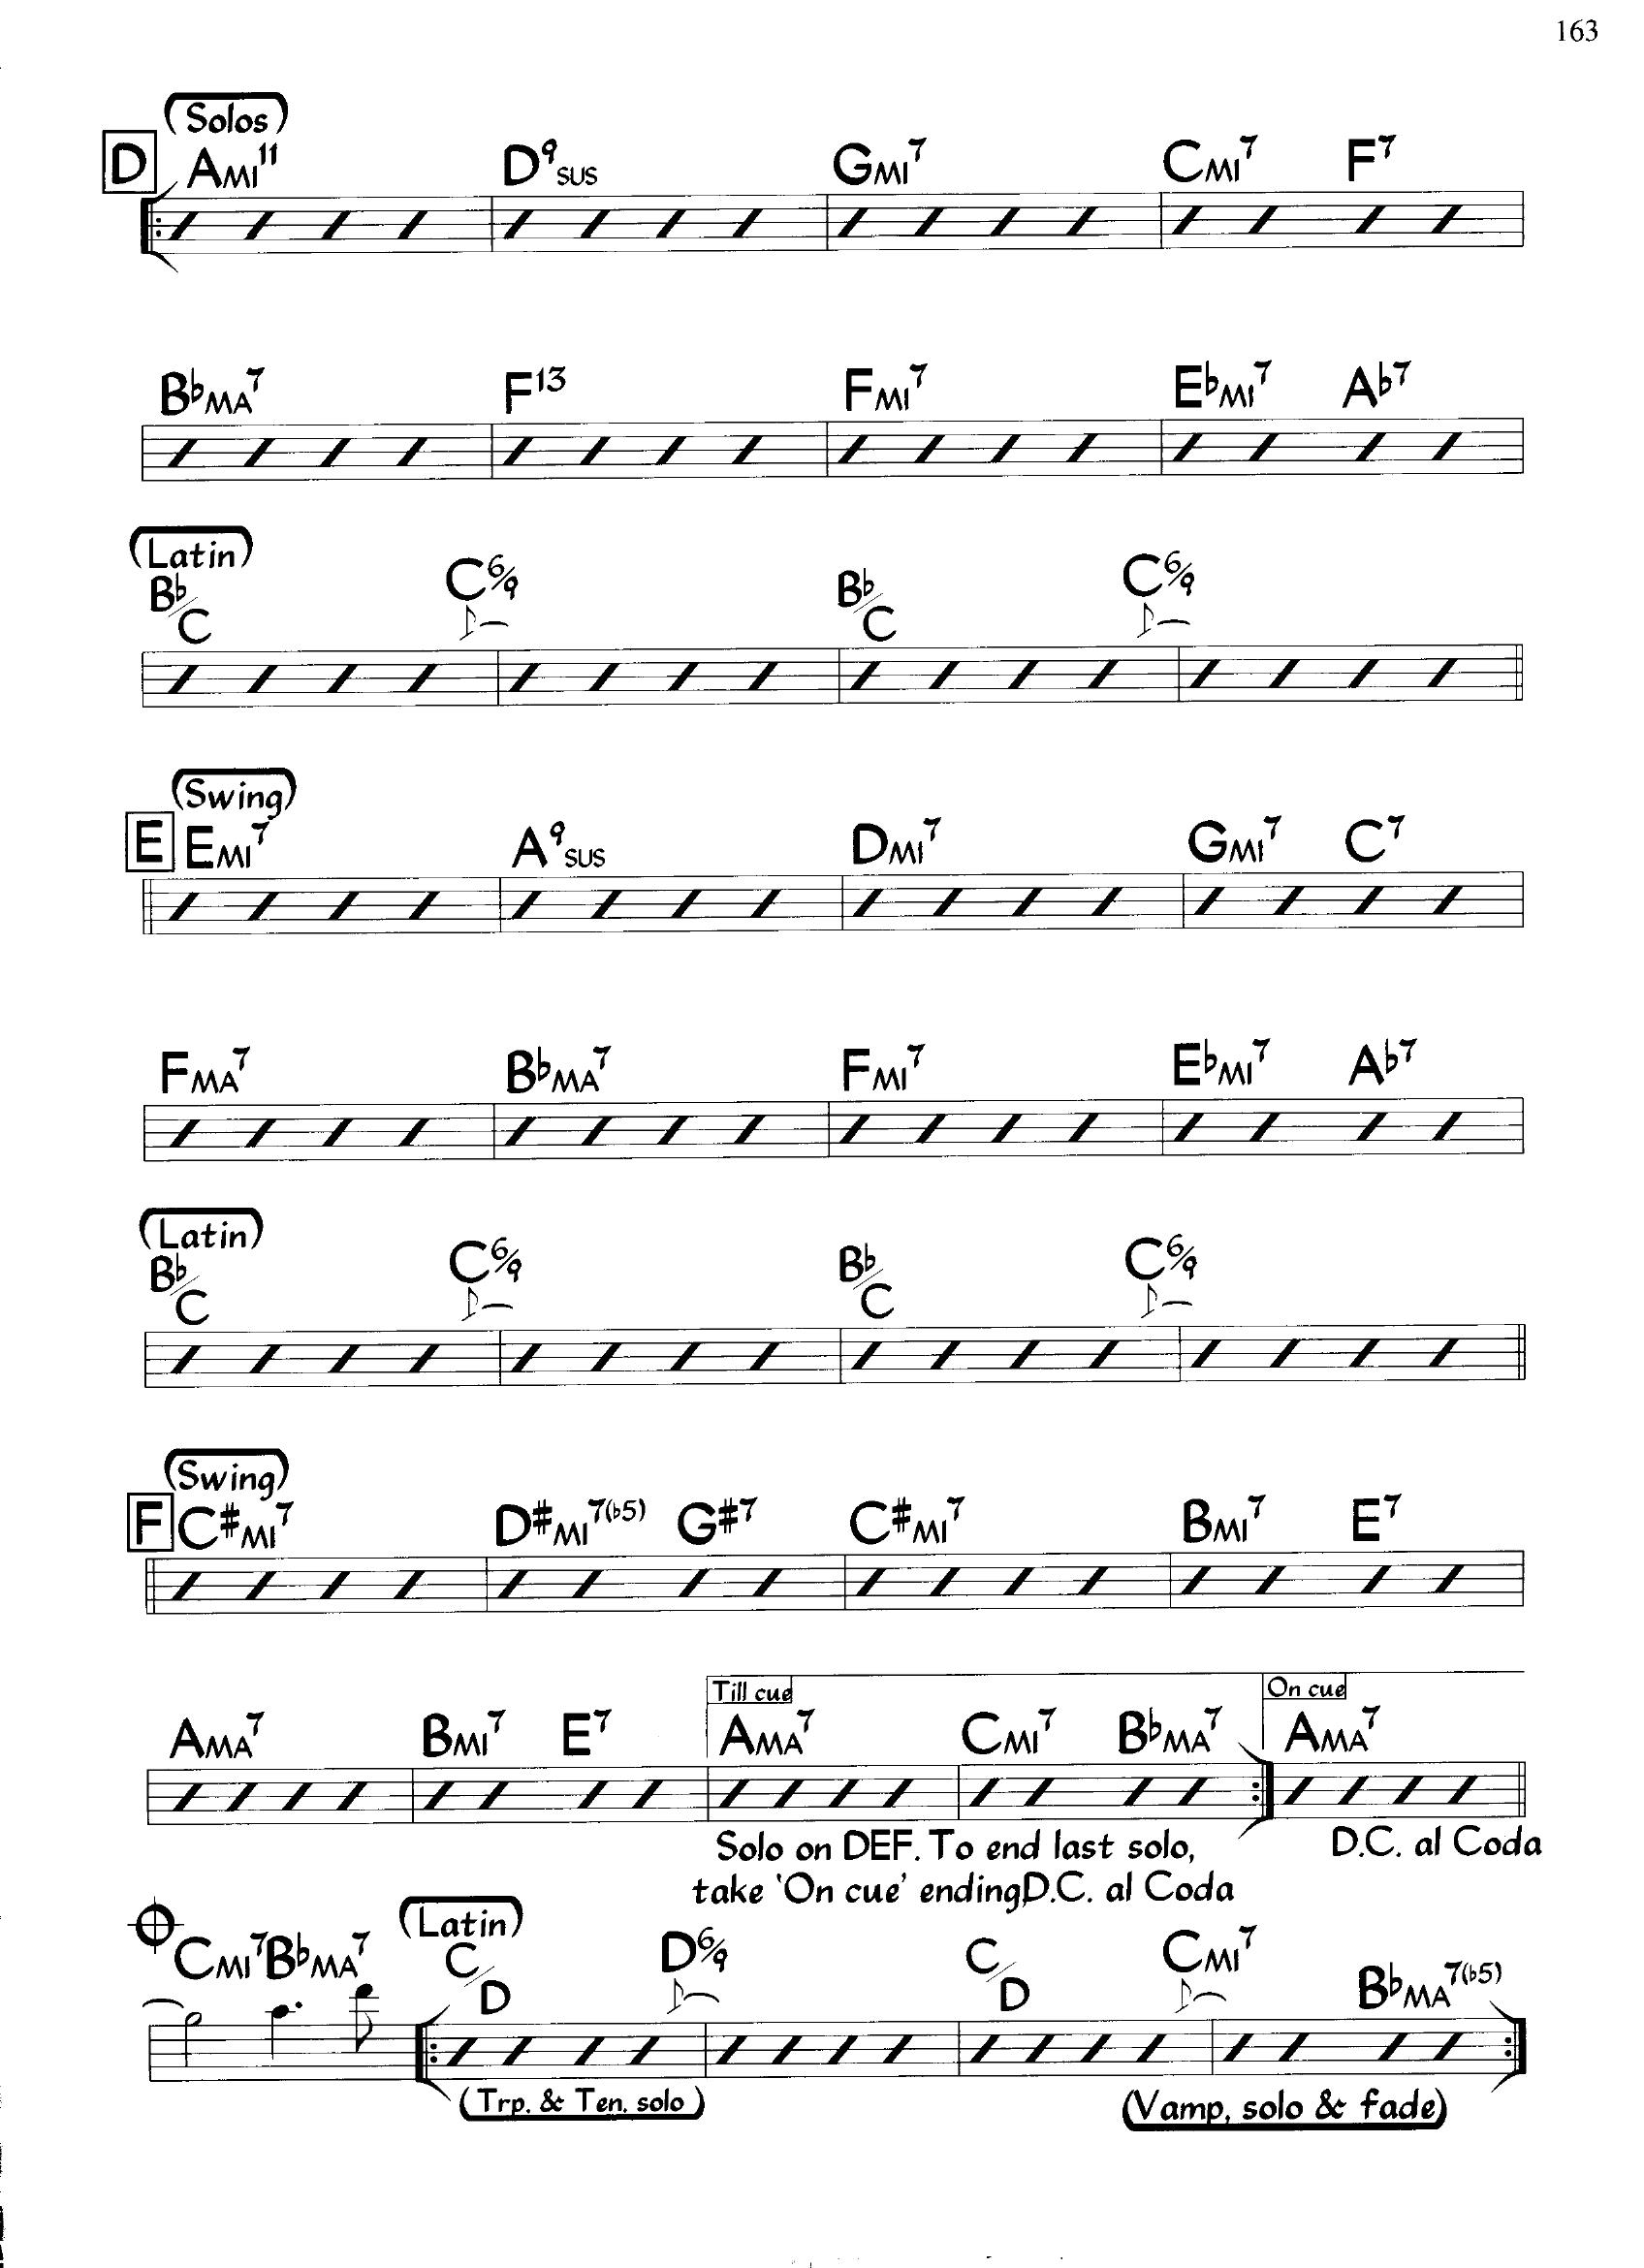 163
(Solos)
D AMI11 D9SUS GMI7 CMI7 F7
B♭MA7 F13 FMI7 E♭MI7 A♭7
(Latin)
B♭/C C6/9 B♭/C C6/9
(Swing)
E EMI7 A9SUS DMI7 GMI7 C7
FMA7 B♭MA7 FMI7 E♭MI7 A♭7
(Latin)
B♭/C C6/9 B♭/C C6/9
(Swing)
F C#MI7 D#MI7(♭5) G#7 C#MI7 BMI7 E7
Till cue On cue
AMA7 BMI7 E7 AMA7 CMI7 B♭MA7 AMA7
Solo on DEF. To end last solo, D.C. al Coda
take 'On cue' ending, D.C. al Coda
(Latin)
CMI7 B♭MA7 C/D D6/9 C/D CMI7 B♭MA7(♭5)
(Trp. & Ten. solo) (Vamp, solo & fade)